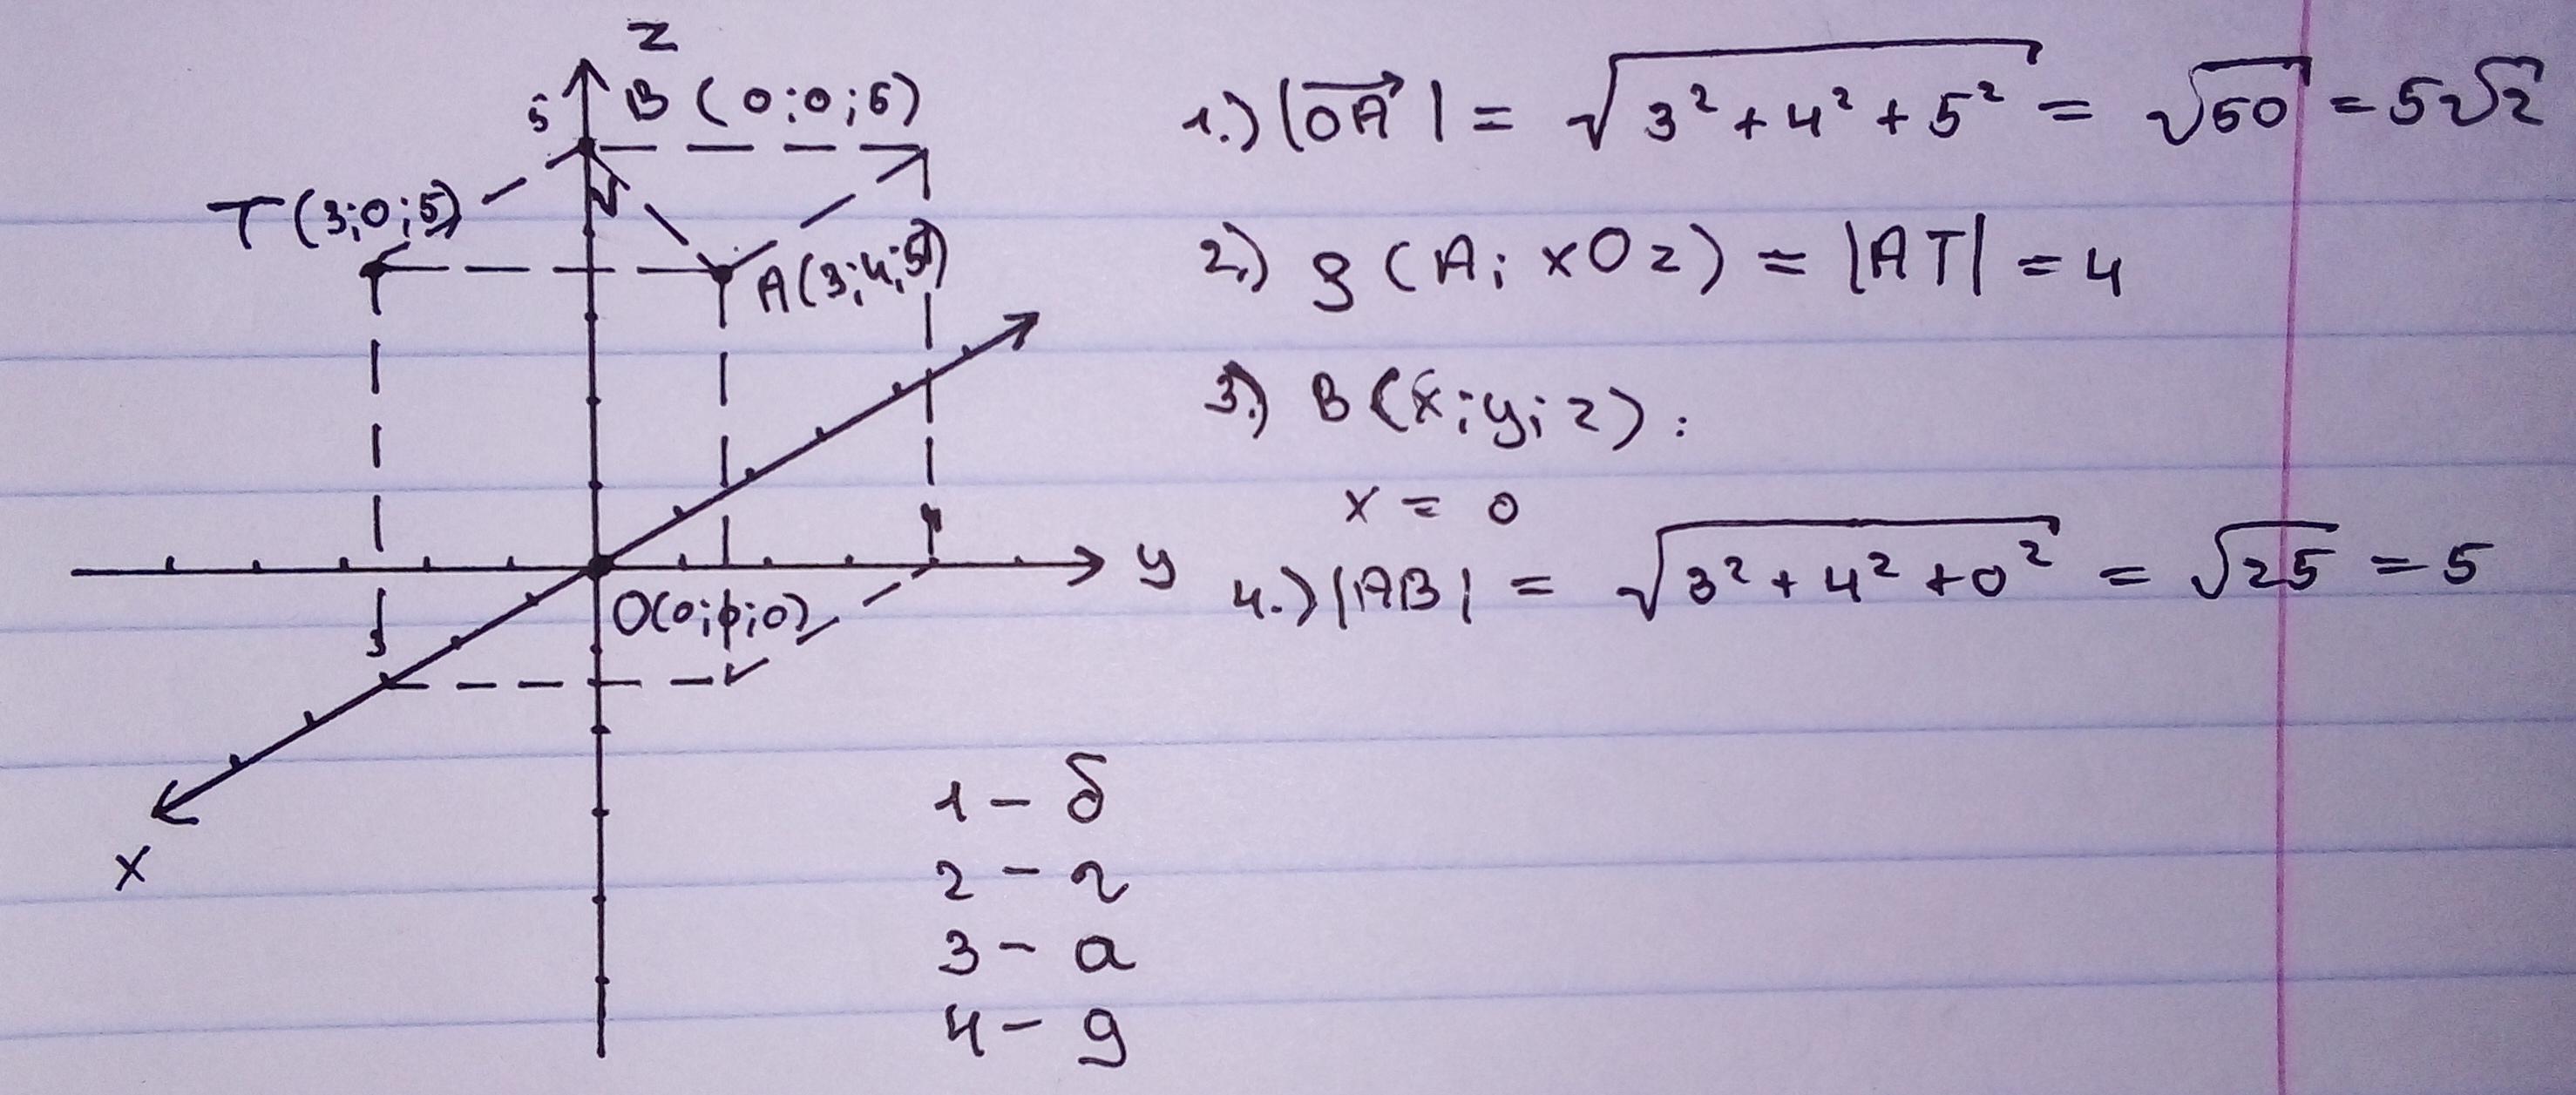 z
5 B (0;0;5)
T (3;0;5)
A (3;4;5)
y
O(0;0;0)
3
x
1.) |OA| = √3² + 4² + 5² = √50 = 5√2
2.) ρ (A; xOz) = |AT| = 4
3.) B (x; y; z) :
x = 0
4.) |AB| = √3² + 4² + 0² = √25 = 5
1 – б
2 – г
3 – а
4 – д